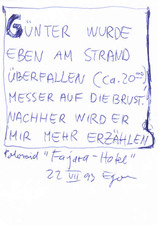 GÜNTER WURDE
EBEN AM STRAND
ÜBERFALLEN (ca. 20⁰⁰)
MESSER AUF DIE BRUST.
NACHHER WIRD ER
MIR MEHR ERZÄHLEN
"Fajara-Hotel"
22 VII 93 Egon